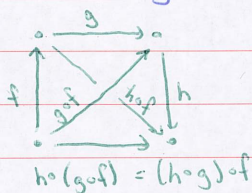 g
f
g∘f
h∘g
h
h∘(g∘f) = (h∘g)∘f